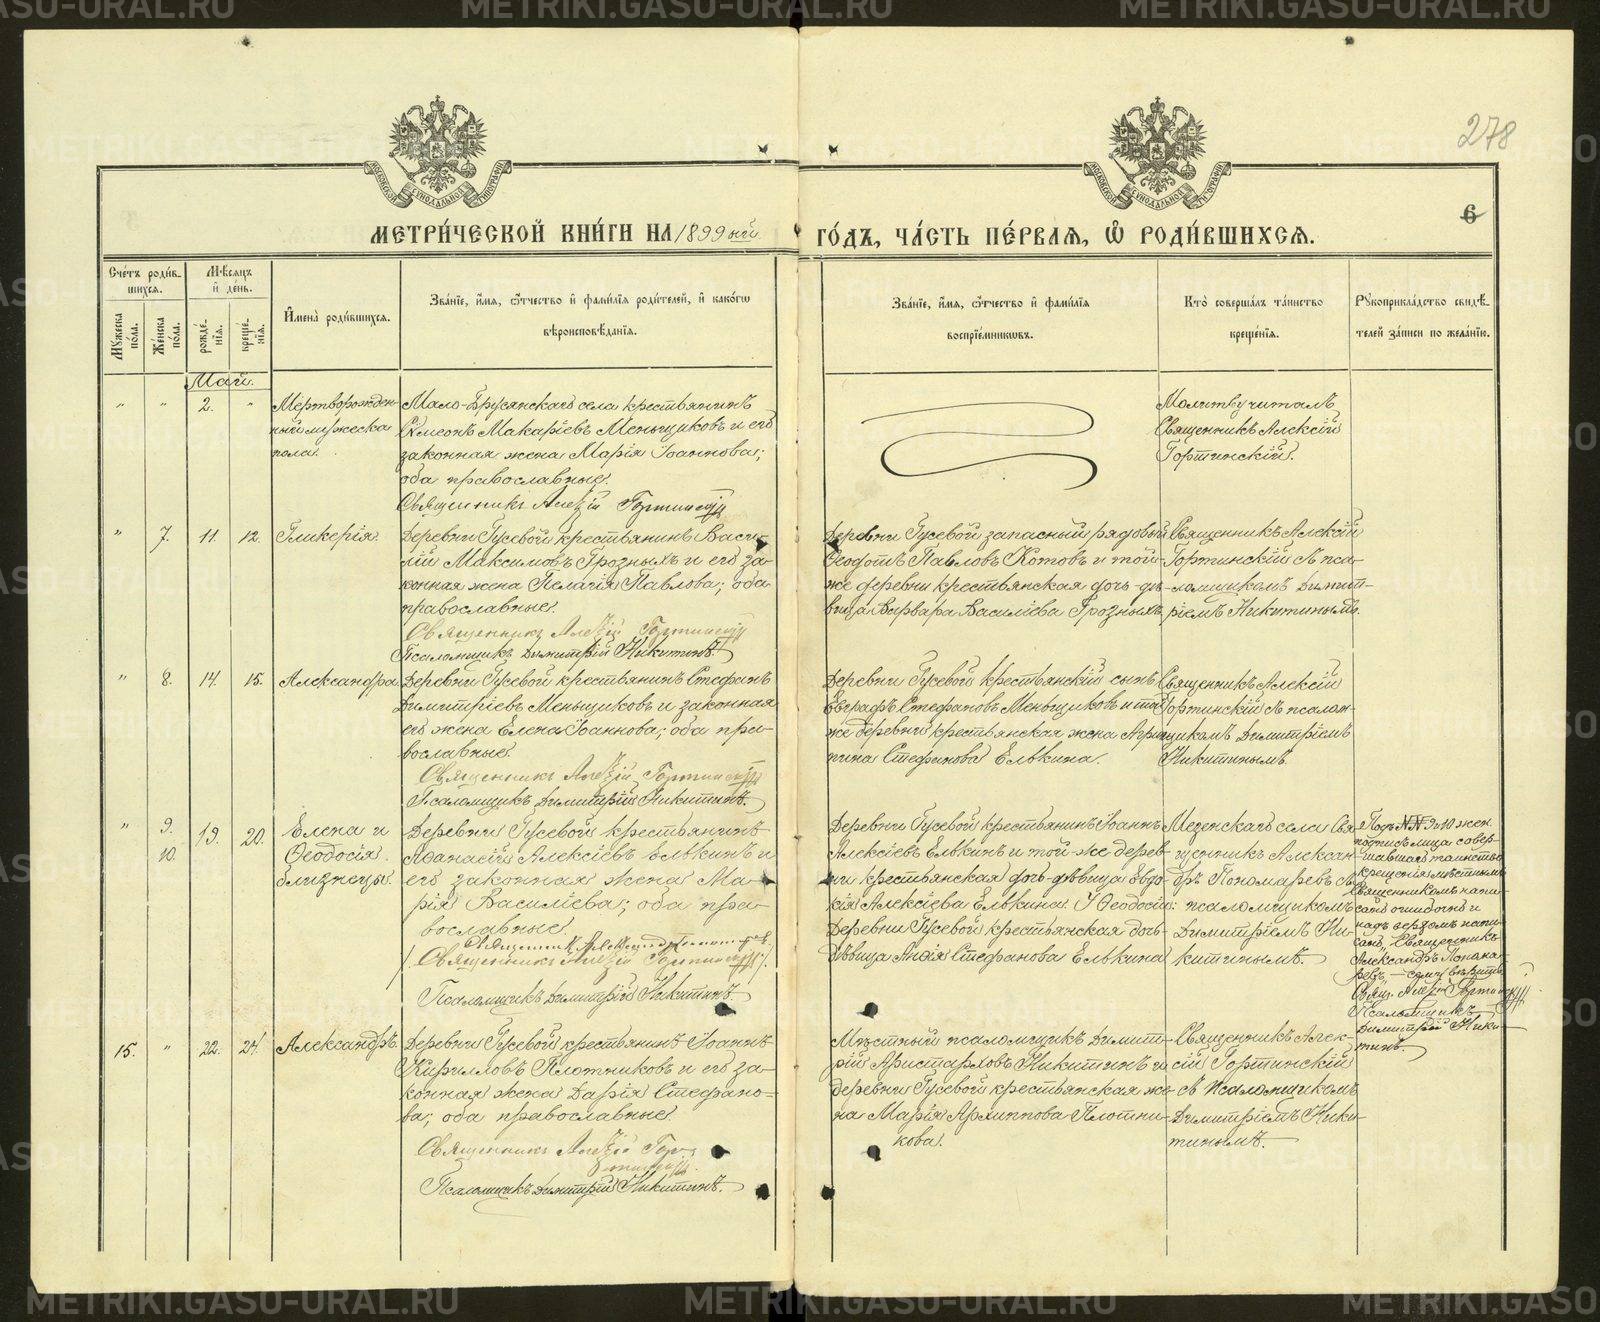 METRIKI.GASU-URAL.RU
278
МОСКОВСКОЙ СѴНОДАЛЬНОЙ ТИПОГРАФІИ
МОСКОВСКОЙ СѴНОДАЛЬНОЙ ТИПОГРАФІИ
6
МЕТРИ́ЧЕСКОЙ КНИ́ГИ НА 1899ый
ГО́ДЪ, ЧА́СТЬ ПЕ́РВАЯ, Ѡ РОДИ́ВШИХСЯ.
Счетъ роди́в-
шихся.
Мѣсяцъ
и де́нь.
Мꙋжеска по́ла.
Же́нска по́ла.
рожде́-
нїѧ.
креще́-
нїѧ.
Имена̀ роди́вшихся.
Зва́нїе, и́мѧ, ѻ҆́тчество и҆ фами́лїѧ роди́телей, и҆ како́гѡ
вѣроисповѣ́данїѧ.
Зва́нїе, и́мѧ, ѻ҆́тчество и҆ фами́лїѧ
воспрїе́мниковъ.
Кто̀ соверша́лъ та́инство
креще́нїѧ.
Рꙋкоприкла́дство свидѣ́-
телей за́писи по жела́нїю.
Май.
" " 2. "
Мертворожден-
ный мужеска
пола.
Мало-Брусянскаго села крестьянинъ
Симеонъ Макаріевъ Меньщиковъ и его
законная жена Марія Іоаннова;
оба православные.
Священникъ Алексій Гортинскій
Молитву читалъ
Священникъ Алексій
Гортинскій.
" 7. 11. 12.
Гликерія.
Деревни Гусевой крестьянинъ Васи-
лій Максимовъ Грозныхъ и его за-
конная жена Пелагія Павлова; оба
православные.
Священникъ Алексій Гортинскій
Псаломщикъ Димитрій Никитинъ.
Деревни Гусевой запасный рядовый
Ѳеодотъ Павловъ Котовъ и той-
же деревни крестьянская дочь-дѣ-
вица Варвара Василіева Грозныхъ
Священникъ Алексій
Гортинскій съ пса-
ломщикомъ Димит-
ріемъ Никитинымъ.
" 8. 14. 15.
Александра.
Деревни Гусевой крестьянинъ Стефанъ
Димитріевъ Меньщиковъ и законная
его жена Елена Іоаннова; оба пра-
вославные.
Священникъ Алексій Гортинскій
Псаломщикъ Димитрій Никитинъ.
Деревни Гусевой крестьянскій сынъ
Евграфъ Стефановъ Меньщиковъ и той
же деревни крестьянская жена Агрип-
пина Стефанова Елькина.
Священникъ Алексій
Гортинскій съ псалом-
щикомъ Димитріемъ
Никитинымъ.
" 9. 10. 19. 20.
Елена и
Ѳеодосія.
близнецы.
Деревни Гусевой крестьянинъ
Аѳанасій Алексіевъ Елькинъ и
его законная жена Ма-
рія Василіева; оба пра-
вославные.
Священникъ Александръ Пономаревъ.
(Священникъ Алексій Гортинскій).
Псаломщикъ Димитрій Никитинъ.
Деревни Гусевой крестьянинъ Іоаннъ
Алексіевъ Елькинъ и той-же дерев-
ни крестьянская дочь-дѣвица Евдо-
кія Алексіева Елькина. У Ѳеодосіи:
Деревни Гусевой крестьянская дочь
дѣвица Лидія Стефанова Елькина
Мезенскаго села Свя-
щенникъ Александ-
ръ Пономаревъ съ
псаломщикомъ
Димитріемъ Ни-
китинымъ.
Подъ №№ 9 и 10 жен.
подпись лица совер-
шавшаго таинство
крещенія мѣстнымъ
Священникомъ напи-
сана ошибочно и
надъ верхомъ напи-
сано „Священникъ
Александръ Понома-
ревъ", — сему вѣрить.
Свящ. Алексій Гортинскій
Псаломщикъ
Димитрій Ники-
тинъ.
15. " 22. 24.
Александръ.
Деревни Гусевой крестьянинъ Іоаннъ
Кирилловъ Плотниковъ и его за-
конная жена Дарія Стефано-
ва; оба православные.
Священникъ Алексій Гор-
тинскій.
Псаломщикъ Димитрій Никитинъ.
Мѣстный псаломщикъ Димит-
рій Аристарховъ Никитинъ и
деревни Гусевой крестьянская же-
на Марія Архиппова Плотни-
кова.
Священникъ Алек-
сій Гортинскій
съ псаломщикомъ
Димитріемъ Ники-
тинымъ.